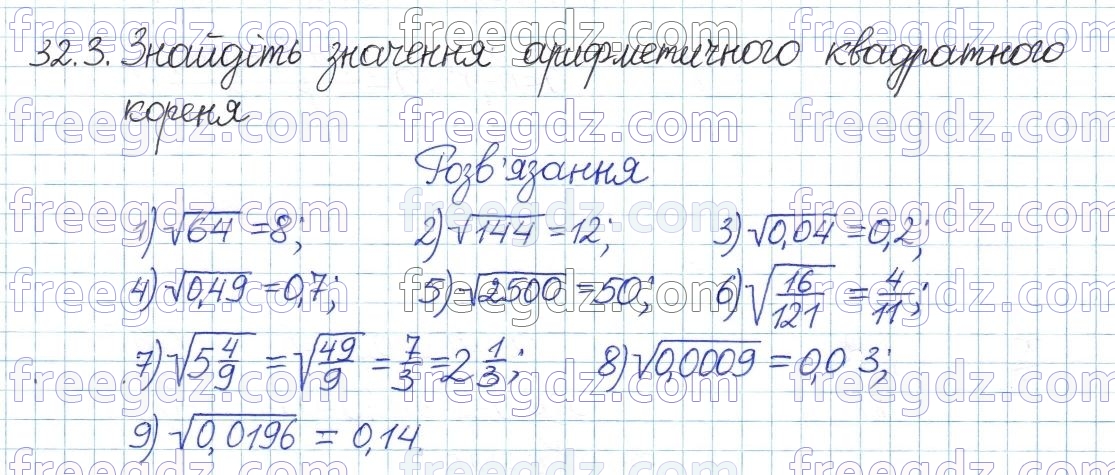 32.3. Знайдіть значення арифметичного квадратного
кореня
Розв'язання
1) √64 = 8; 2) √144 = 12; 3) √0,04 = 0,2;
4) √0,49 = 0,7; 5) √2500 = 50; 6) √16/121 = 4/11;
7) √5 4/9 = √49/9 = 7/3 = 2 1/3; 8) √0,0009 = 0,03;
9) √0,0196 = 0,14.
freegdz.com